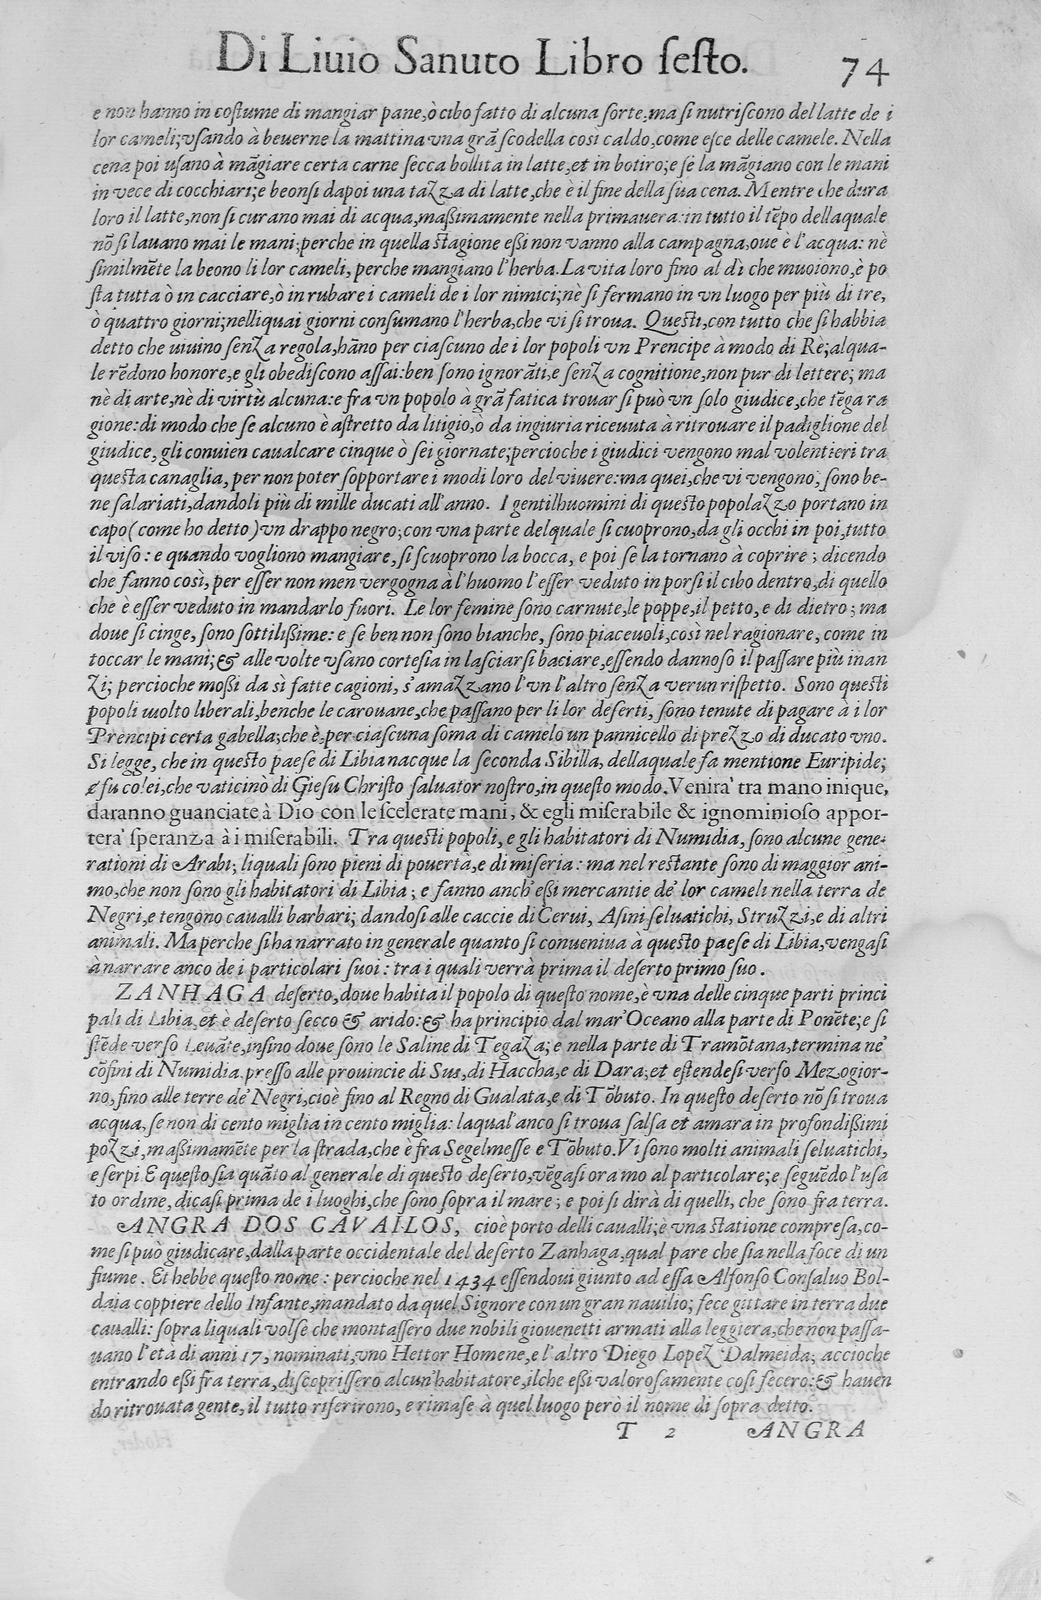 Di Liuio Sanuto Libro ſeſto. 74
e non hanno in coſtume di mangiar pane, ò cibo fatto di alcuna ſorte, ma ſi nutriſcono del latte de i
lor cameli; vſando à beuerne la mattina vna grã ſcodella così caldo, come eſce delle camele. Nella
cena poi uſano à mãgiare certa carne ſecca bollita in latte, et in botiro; e ſe la mãgiano con le mani
in vece di cocchiari; e beonſi dapoi una tazza di latte, che è il fine della ſua cena. Mentre che dura
loro il latte, non ſi curano mai di acqua, maßimamente nella primauera: in tutto il tẽpo dellaquale
nõ ſi lauano mai le mani; perche in quella ſtagione eßi non vanno alla campagna, oue è l'acqua: nè
ſimilmẽte la beono li lor cameli, perche mangiano l'herba. La vita loro fino al dì che muoiono, è po
ſta tutta ò in cacciare, ò in rubare i cameli de i lor nimici; nè ſi fermano in vn luogo per più di tre,
ò quattro giorni; nelliquai giorni conſumano l'herba, che vi ſi troua. Queſti, con tutto che ſi habbia
detto che uiuino ſenza regola, hãno per ciaſcuno de i lor popoli vn Prencipe à modo di Rè; alqua-
le rẽdono honore, e gli obediſcono aſſai: ben ſono ignorãti, e ſenza cognitione, non pur di lettere; ma
nè di arte, nè di virtù alcuna: e fra vn popolo à grã fatica trouar ſi può vn ſolo giudice, che tẽga ra
gione: di modo che ſe alcuno è aſtretto da litigio, ò da ingiuria riceuuta à ritrouare il padiglione del
giudice, gli conuien caualcare cinque ò ſei giornate; percioche i giudici vengono mal volentieri tra
queſta canaglia, per non poter ſopportare i modi loro del viuere: ma quei, che vi vengono, ſono be-
ne ſalariati, dandoli più di mille ducati all'anno. I gentilhuomini di queſto popolazzo portano in
capo (come ho detto) vn drappo negro; con vna parte delquale ſi cuoprono, da gli occhi in poi, tutto
il viſo: e quando vogliono mangiare, ſi ſcuoprono la bocca, e poi ſe la tornano à coprire; dicendo
che fanno così, per eſſer non men vergogna à l'huomo l'eſſer veduto in porſi il cibo dentro, di quello
che è eſſer veduto in mandarlo fuori. Le lor femine ſono carnute, le poppe, il petto, e di dietro; ma
doue ſi cinge, ſono ſottilißime: e ſe ben non ſono bianche, ſono piaceuoli, così nel ragionare, come in
toccar le mani; & alle volte vſano corteſia in laſciarſi baciare, eſſendo dannoſo il paſſare più inan
zi; percioche moßi da sì fatte cagioni, s'amazzano l'vn l'altro ſenza verun riſpetto. Sono queſti
popoli molto liberali, benche le carouane, che paſſano per li lor deſerti, ſono tenute di pagare à i lor
Prencipi certa gabella; che è, per ciaſcuna ſoma di camelo un pannicello di prezzo di ducato vno.
Si legge, che in queſto paeſe di Libia nacque la ſeconda Sibilla, dellaquale fa mentione Euripide;
e fu colei, che vaticinò di Gieſu Chriſto ſaluator noſtro, in queſto modo. Venira' tra mano inique,
daranno guanciate à Dio con le ſcelerate mani, & egli miſerabile & ignominioſo appor-
tera' ſperanza à i miſerabili. Tra queſti popoli, e gli habitatori di Numidia, ſono alcune gene-
rationi di Arabi; liquali ſono pieni di pouertà, e di miſeria: ma nel reſtante ſono di maggior ani-
mo, che non ſono gli habitatori di Libia; e fanno anch'eßi mercantie de' lor cameli nella terra de
Negri, e tengono caualli barbari; dandoſi alle caccie di Cerui, Aſini ſeluatichi, Struzzi, e di altri
animali. Ma perche ſi ha narrato in generale quanto ſi conueniua à queſto paeſe di Libia, vengaſi
à narrare anco de i particolari ſuoi: tra i quali verrà prima il deſerto primo ſuo.
ZANHAGA deſerto, doue habita il popolo di queſto nome, è vna delle cinque parti princi
pali di Libia, et è deſerto ſecco & arido: & ha principio dal mar' Oceano alla parte di Ponẽte; e ſi
ſtẽde verſo Leuãte, inſino doue ſono le Saline di Tegaza; e nella parte di Tramõtana, termina ne'
cõfini di Numidia, preſſo alle prouincie di Sus, di Haccha, e di Dara; et eſtendeſi verſo Mezogior-
no, fino alle terre de' Negri, cioè fino al Regno di Gualata, e di Tõbuto. In queſto deſerto nõ ſi troua
acqua, ſe non di cento miglia in cento miglia: laqual'anco ſi troua ſalſa et amara in profondißimi
pozzi, maßimamẽte per la ſtrada, che è fra Segelmeſſe e Tõbuto. Vi ſono molti animali ſeluatichi,
e ſerpi E queſto ſia quãto al generale di queſto deſerto, vẽgaſi ora mo al particolare; e ſeguẽdo l'uſa
to ordine, dicaſi prima de i luoghi, che ſono ſopra il mare; e poi ſi dirà di quelli, che ſono fra terra.
ANGRA DOS CAVAILOS, cioè porto delli caualli; è vna ſtatione compreſa, co-
me ſi può giudicare, dalla parte occidentale del deſerto Zanhaga, qual pare che ſia nella foce di un
fiume. Et hebbe queſto nome: percioche nel 1434 eſſendoui giunto ad eſſa Alfonſo Conſaluo Bol-
daia coppiere dello Infante, mandato da quel Signore con un gran nauilio; fece gittare in terra due
caualli: ſopra liquali volſe che montaſſero due nobili giouenetti armati alla leggiera, che non paſſa-
uano l'età di anni 17, nominati, vno Hettor Homene, e l'altro Diego Lopez Dalmeida; accioche
entrando eßi fra terra, diſcopriſſero alcun'habitatore, ilche eßi valoroſamente coſi fecero: & hauen
do ritrouata gente, il tutto riferirono, e rimaſe à quel luogo però il nome di ſopra detto.
T 2 ANGRA